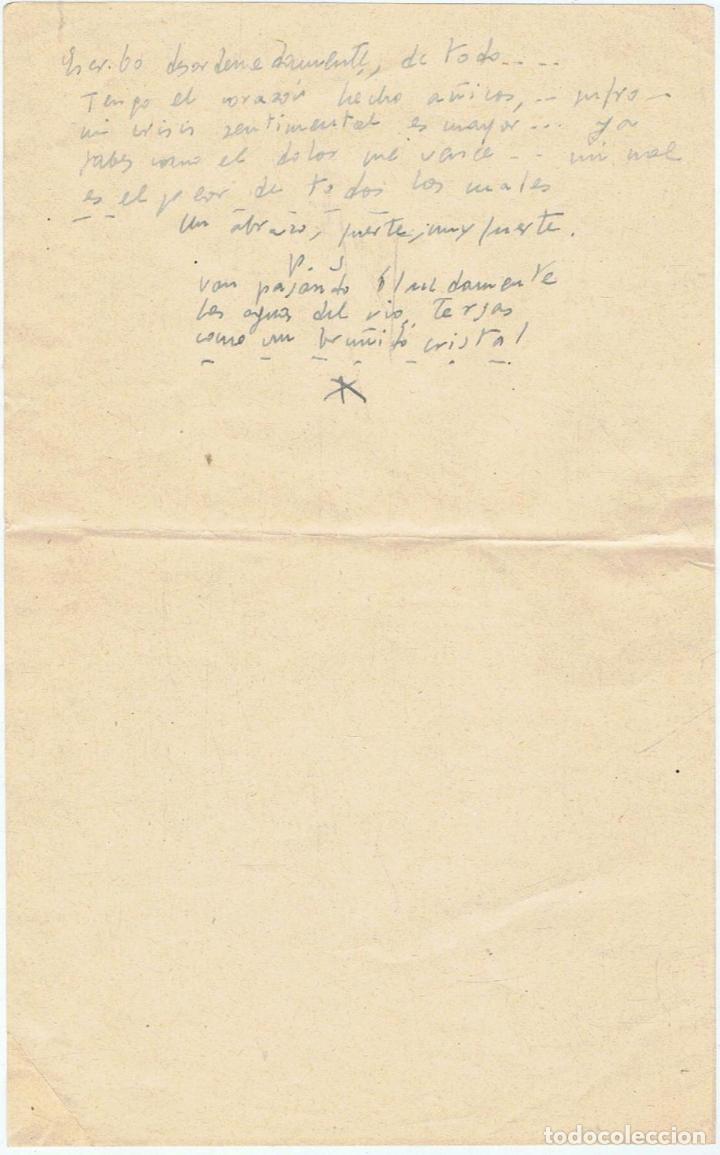 Escribo desordenadamente, de todo....
Tengo el corazón hecho añicos, .. sufro —
mi crisis sentimental es mayor... ya
sabes como el dolor me vence... mi mal
es el peor de todos los males
un abrazo, fuerte, muy fuerte.
P. S
van pasando
las aguas del rio, tersas
como un bruñido cristal
todocoleccion